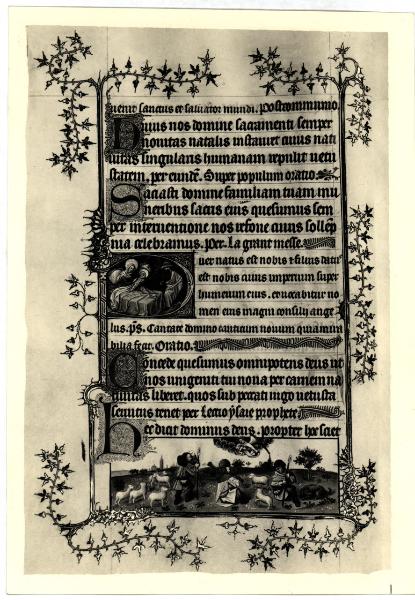 uenit sanctus et saluator mundi. postcommunio.
Huius nos domine sacramenti semper
nouitas natalis instauret cuius nati
uitas singularis humanam repulit uetu
statem. per eundē. Super populum oratio
Saciasti domine familiam tuam mu
neribus sacris eius quesumus sem
per interuentione nos refoue cuius sollēp
nia celebramus. Per. La grant messe.
Puer natus est nobis et filius datus
est nobis cuius imperium super
humerum eius. et uocabitur no
men eius magni consilij ange
lus. p̄s. Cantate domino canticum nouum quia mira
bilia fecit. Oratio.
Concede quesumus omnipotens deus ut
nos unigeniti tui noua per carnem na
tiuitas liberet. quos sub peccati iugo uetusta
seruitus tenet per Lectio ysaie prophete
Hec dicit dominus deus. propter hoc sciet